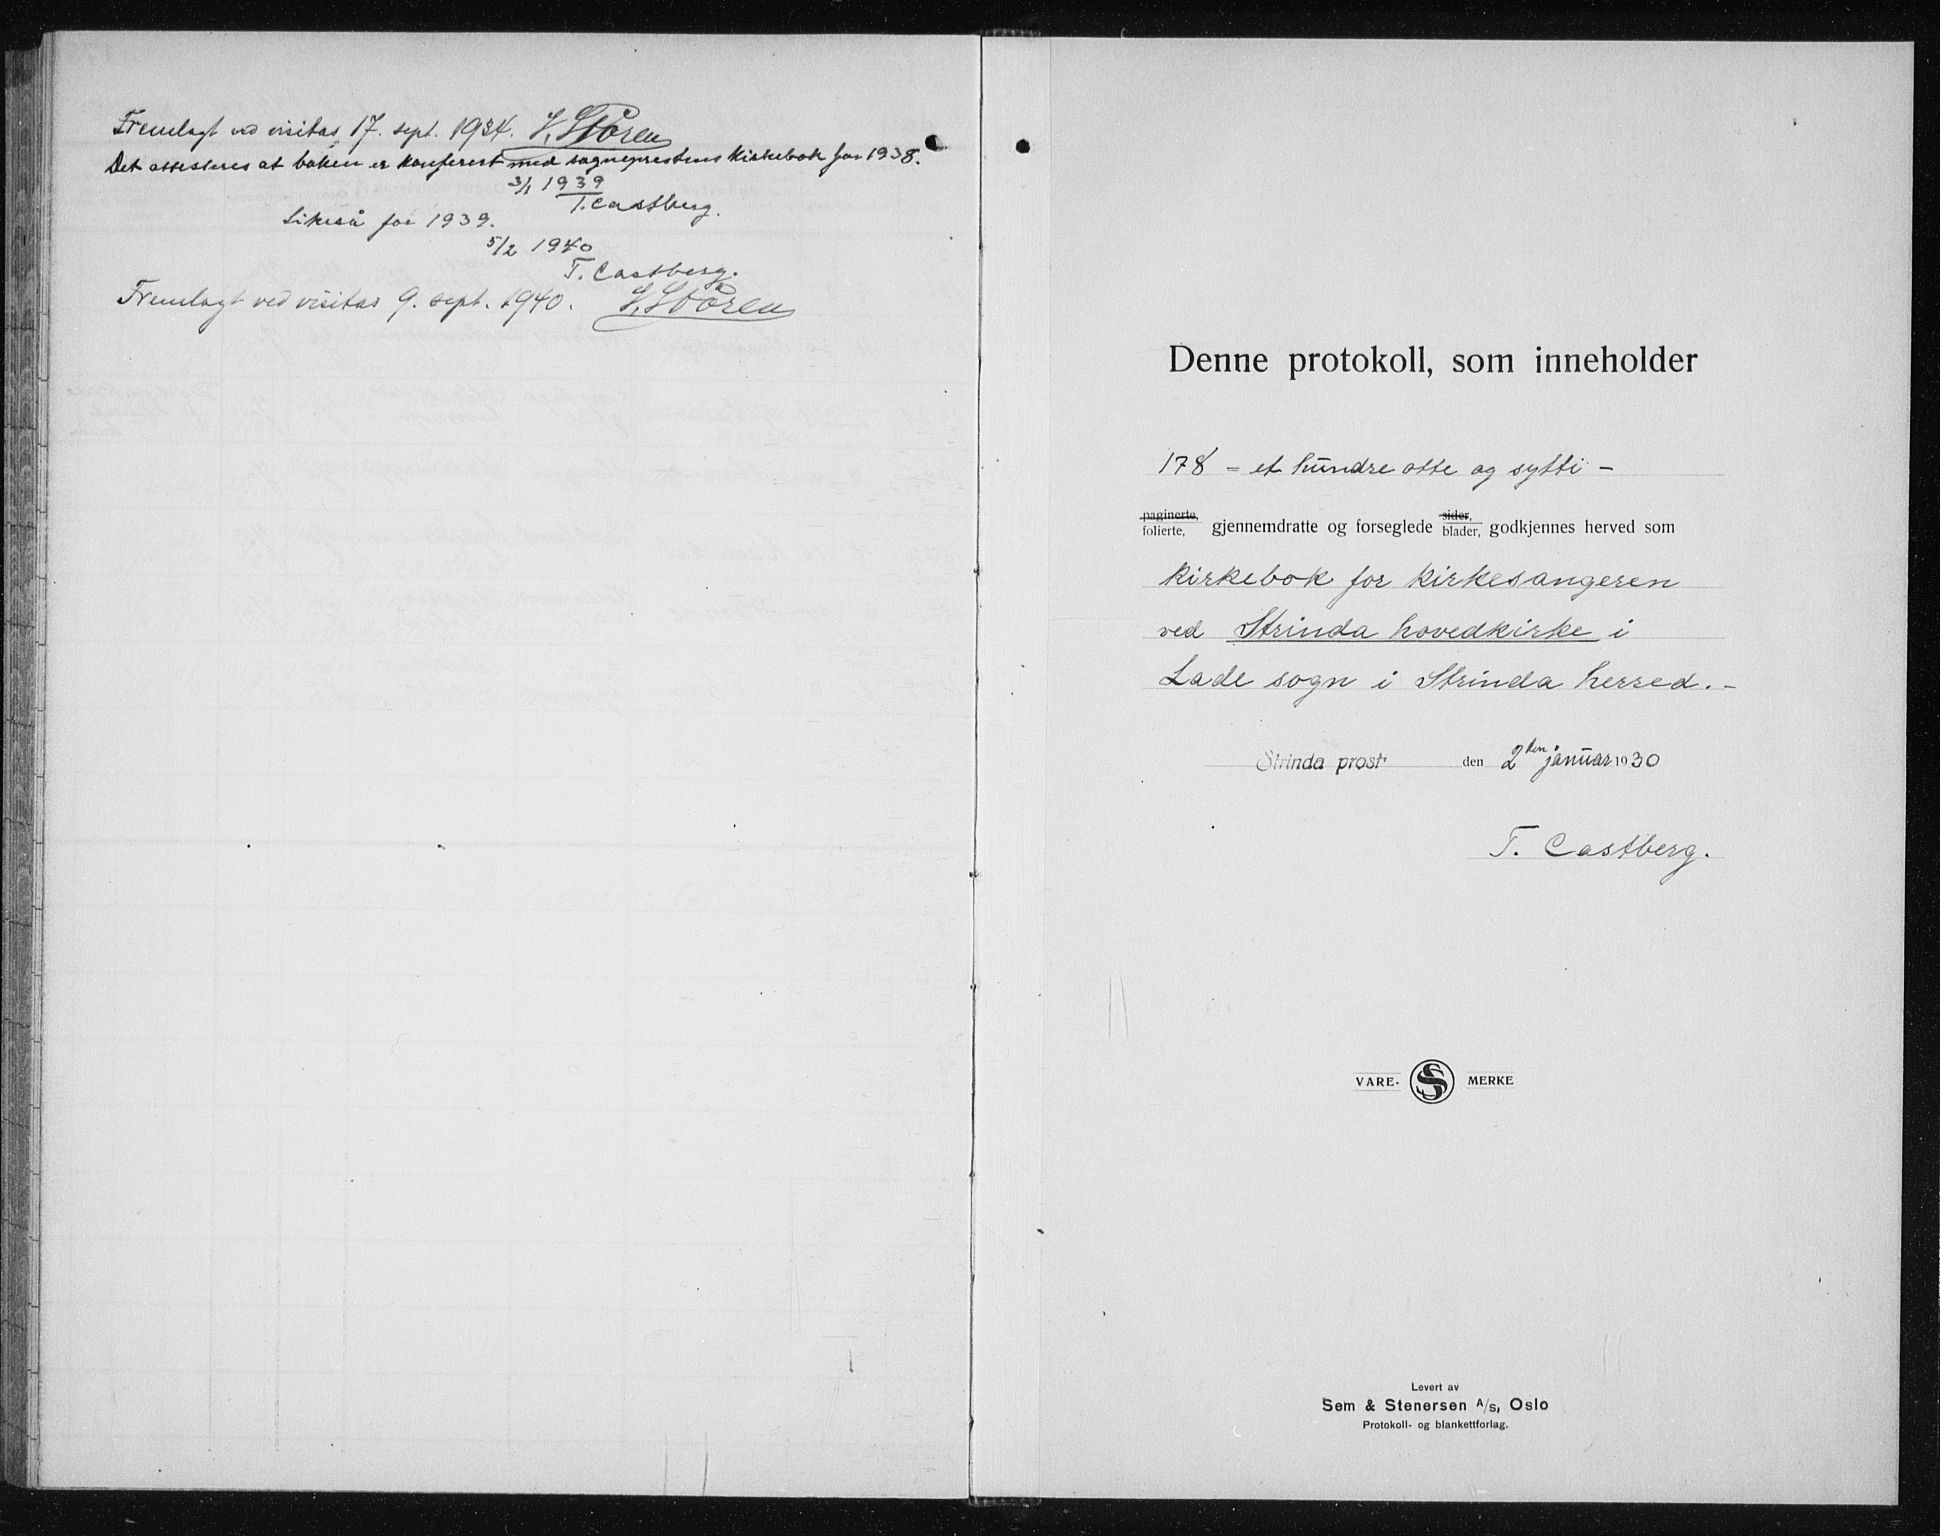 Fremlagt ved visitas 17. sept. 1934. J. Støren
Det attesteres at boken er konferert med sogneprestens kirkebok for 1938.
3/1 1939
T. Castberg.
Likeså for 1939.
5/2 1940
T. Castberg.
Fremlagt ved visitas 9. sept. 1940. J. Støren
Denne protokoll, som inneholder
178 - et hundre otte og sytti -
paginerte,
folierte, gjennemdratte og forseglede sider, blader, godkjennes herved som
kirkebok for kirkesangeren
ved Strinda hovedkirke i
Lade sogn i Strinda herred. -
Strinda prosti den 2den januar 1930
T. Castberg.
VARE- SS MERKE
Levert av
Sem & Stenersen A/s, Oslo
Protokoll- og blankettforlag.